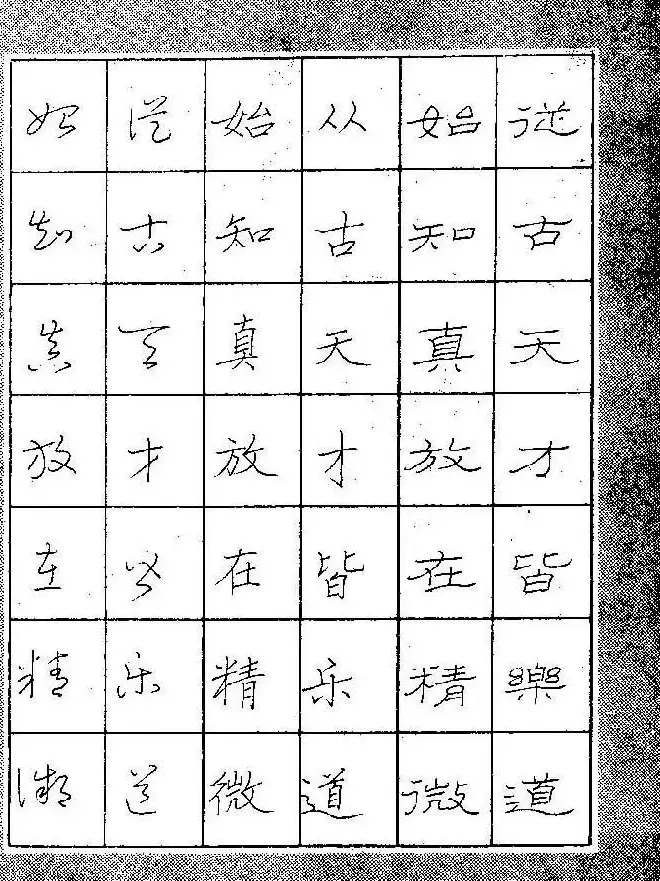 從古天才皆樂道
始知真放在精微
从古天才皆乐道
始知真放在精微
從古天才皆乐道
始知真放在精微